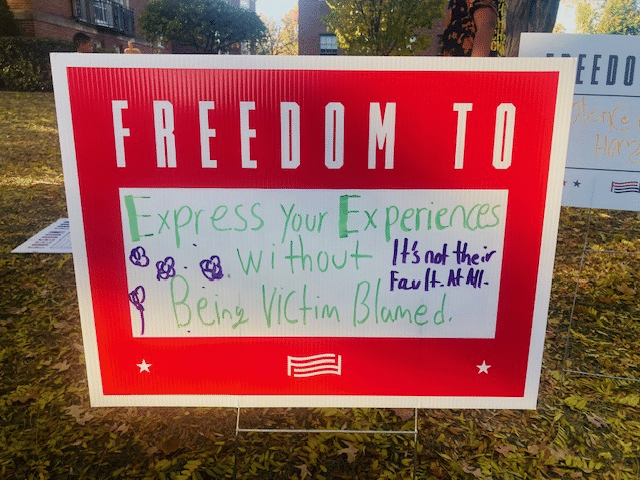 FREEDOM TO
Express your Experiences
without
Being Victim Blamed.
It's not their
Fault. At All.
FREEDO